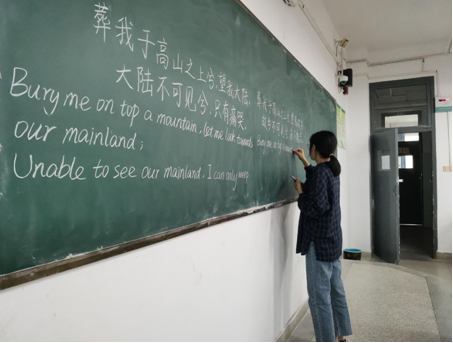 葬我于高山之上兮,望我大陆;
大陆不可见兮,只有痛哭.
Bury me on top a mountain, let me look towards
our mainland;
Unable to see our mainland, I can only weep
葬我于高山之上兮
Bury me on top